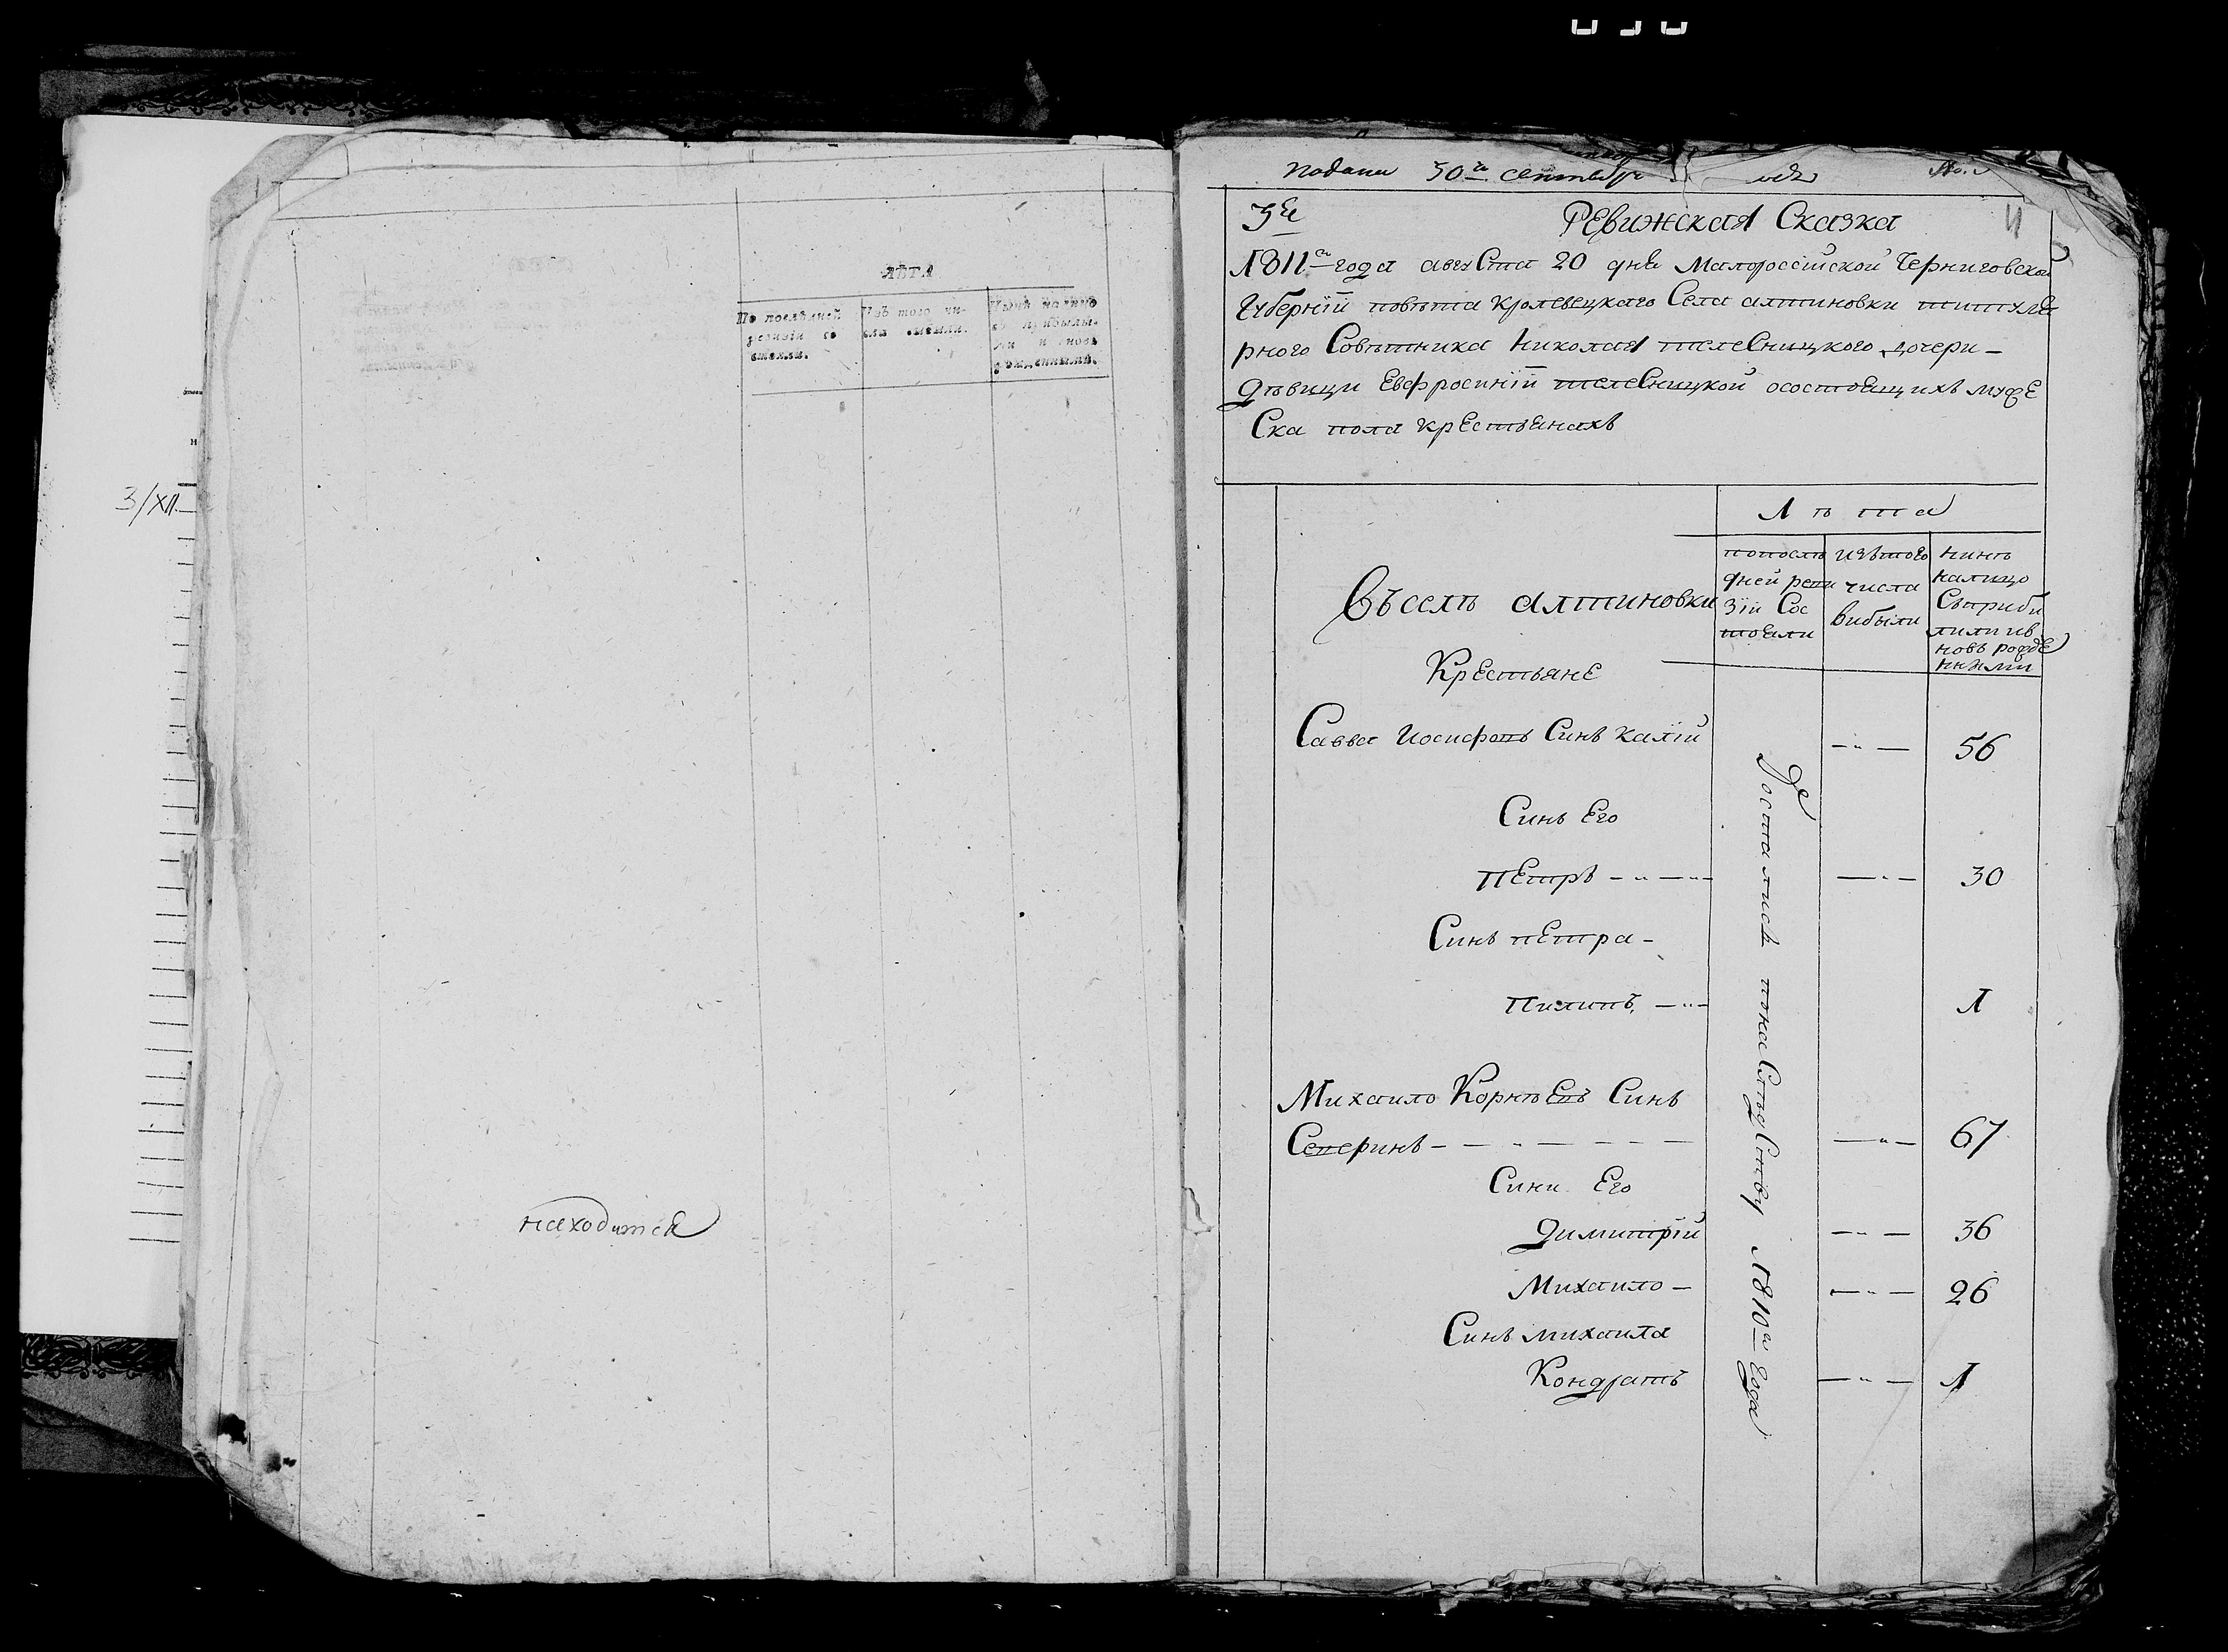 3/XII
ЛѢТА
По послѣдней ревизіи состояли.
Изъ того числа выбыли.
Нынѣ на лицо съ прибылыми и вновь рожденными.
находится
Подани 30го сентебря
3Я
РЕвижская Сказка
1811го года августа 20 дня Малороссійской Черниговской
Губерніи повѣта кролевецкаго Села алтиновки титуля
рного Совѣтника Николая телесницкого дочери –
дѣвици Евфросиніи телесницкой осостоящихъ мужЕ
Ска пола крЕстьянахъ
Лѣта
Въ селѣ алтиновки
попослѣ
дней реви
зіи Сос
тояли
изътого
числа
вибыли
нинѣ
налицо
Съприби
лими ив
новь рождЕ
нними
КрЕстьянЕ
Савва Иосифовъ Синъ калій 56
Синъ Его
пЕтръ 30
Синъ пЕтра –
Пилипъ 1
Михаило КорнѣЕвъ Синъ
Северинъ 67
Сини Его
Димитрій 36
Михаило – 26
Синъ михаила
Кондратъ 1
Досталися понаСлѣдСтву 1810го года